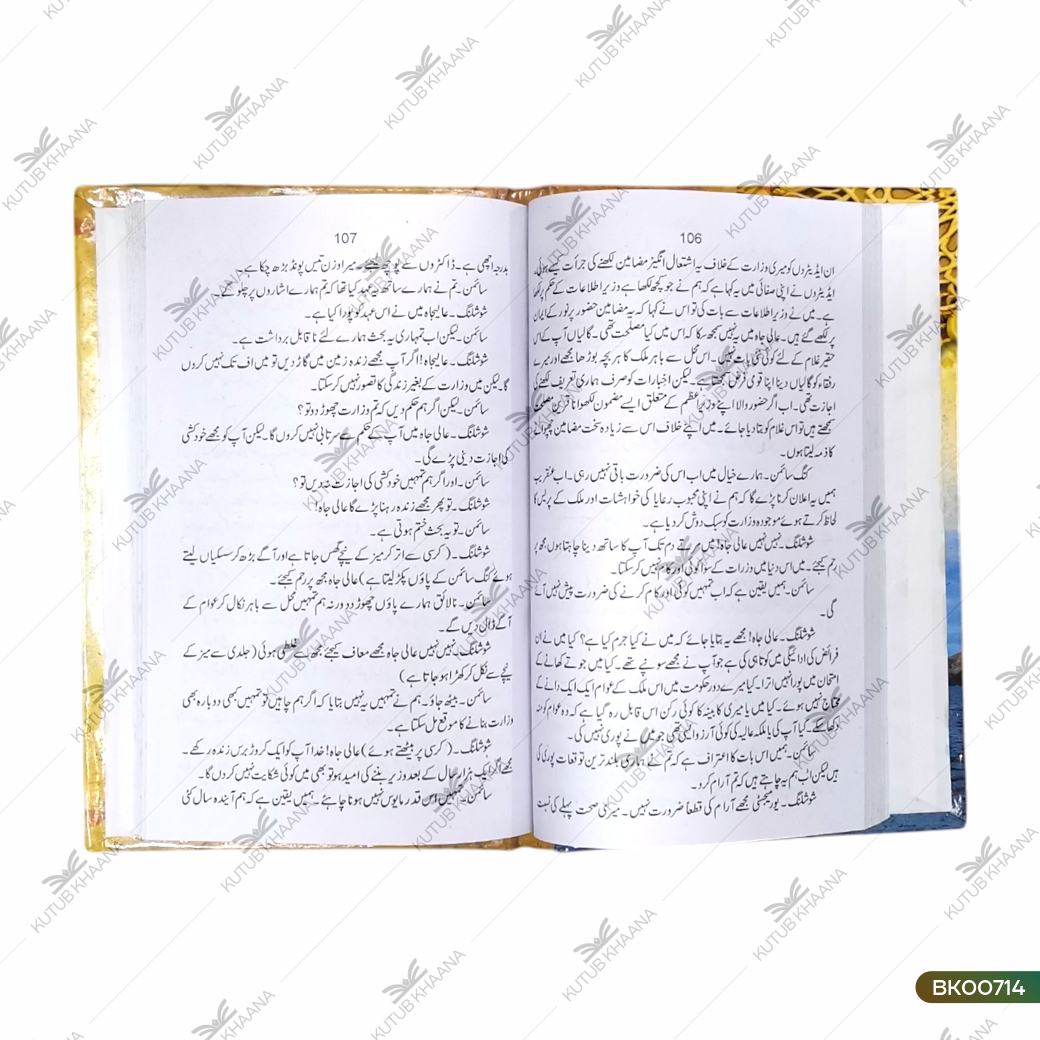 106
ان ایڈیٹروں کو میری وزارت کے خلاف یہ اشتعال انگیز مضامین لکھنے کی جرأت کیسے ہوئی۔
ایڈیٹروں نے اپنی صفائی میں یہ کہا ہے کہ ہم نے جو کچھ لکھا ہے وزیر اطلاعات کے حکم پر لکھا
ہے۔ میں نے وزیر اطلاعات سے بات کی تو اس نے کہا کہ یہ مضامین حضور پرنور کے ایمان
پر لکھے گئے ہیں۔ عالی جاہ میں یہ نہیں سمجھ سکا کہ اس میں کیا مصلحت تھی۔ گالیاں آپ کے اس
حقیر غلام کے لئے کوئی نئی بات نہیں۔ اس محل سے باہر ملک کا ہر بچہ بوڑھا مجھے اور میرے
رفقاء کو گالیاں دینا اپنا قومی فرض سمجھتا ہے۔ لیکن اخبارات کو صرف ہماری تعریف لکھنے کی
اجازت تھی۔ اب اگر حضور والا اپنے وزیر اعظم کے متعلق ایسے مضمون لکھوانا قرین مصلحت
سمجھتے ہیں تو اس غلام کو بتا دیا جائے۔ میں اپنے خلاف اس سے زیادہ سخت مضامین چھپوانے
کا ذمہ لیتا ہوں۔
کنگ سائمن۔ ہمارے خیال میں اب اس کی ضرورت باقی نہیں رہی۔ اب عنقریب
ہمیں یہ اعلان کرنا پڑے گا کہ ہم نے اپنی محبوب رعایا کی خواہشات اور ملک کے پریس کا
لحاظ کرتے ہوئے موجودہ وزارت کو سبک دوش کر دیا ہے۔
شوشلنگ۔ نہیں نہیں عالی جاہ! میں مرتے دم تک آپ کا ساتھ دینا چاہتا ہوں مجھ پر
رحم کیجئے۔ میں اس دنیا میں وزرات کے سوا کوئی اور کام نہیں کر سکتا۔
سائمن۔ ہمیں یقین ہے کہ اب تمہیں کوئی اور کام کرنے کی ضرورت پیش نہیں آئے
گی۔
شوشلنگ۔ عالی جاہ! مجھے یہ بتایا جائے کہ میں نے کیا جرم کیا ہے؟ کیا میں نے ان
فرائض کی ادائیگی میں کوتاہی کی ہے جو آپ نے مجھے سونپے تھے۔ کیا میں جوتے کھانے کے
امتحان میں پورا نہیں اترا۔ کیا میرے دور حکومت میں اس ملک کے عوام ایک ایک دانے کے
محتاج نہیں ہوئے۔ کیا میں یا میری کابینہ کا کوئی رکن اس قابل رہ گیا ہے کہ وہ عوام کو منہ
دکھا سکے۔ کیا آپ کی یا ملکہ عالیہ کی کوئی آرزو ایسی تھی جو میں نے پوری نہیں کی۔
سائمن۔ ہمیں اس بات کا اعتراف ہے کہ تم نے ہماری بلند ترین توقعات پوری کی
ہیں لیکن اب ہم یہ چاہتے ہیں کہ تم آرام کرو۔
شوشلنگ۔ یور میجسٹی مجھے آرام کی قطعاً ضرورت نہیں۔ میری صحت پہلے کی نسبت
107
بدرجہا اچھی ہے۔ ڈاکٹروں سے پوچھ لیجئے۔ میرا وزن تیس پونڈ بڑھ چکا ہے۔
سائمن۔ تم نے ہمارے ساتھ یہ عہد کیا تھا کہ تم ہمارے اشاروں پر چلو گے۔
شوشلنگ۔ عالیجاہ میں نے اس عہد کو پورا کیا ہے۔
سائمن۔ لیکن اب تمہاری یہ بحث ہمارے لئے نا قابل برداشت ہے۔
شوشلنگ۔ عالیجاہ! اگر آپ مجھے زندہ زمین میں گاڑ دیں تو میں اف تک نہیں کروں
گا۔ لیکن میں وزارت کے بغیر زندگی کا تصور نہیں کر سکتا۔
سائمن۔ لیکن اگر ہم حکم دیں کہ تم وزارت چھوڑ دو تو؟
شوشلنگ۔ عالی جاہ میں آپ کے حکم سے سرتابی نہیں کروں گا۔ لیکن آپ کو مجھے خودکشی
کی اجازت دینی پڑے گی۔
سائمن۔ اور اگر ہم تمہیں خودکشی کی اجازت نہ دیں تو؟
شوشلنگ۔ تو پھر مجھے زندہ رہنا پڑے گا عالی جاہ!
سائمن۔ تو یہ بحث ختم ہوتی ہے۔
شوشلنگ۔ (کرسی سے اتر کر میز کے نیچے گھس جاتا ہے اور آگے بڑھ کر سسکیاں لیتے
ہوئے کنگ سائمن کے پاؤں پکڑ لیتا ہے) عالی جاہ مجھ پر رحم کیجئے۔
سائمن۔ نالائق ہمارے پاؤں چھوڑ دو ورنہ ہم تمہیں محل سے باہر نکال کر عوام کے
آگے ڈال دیں گے۔
شوشلنگ۔ نہیں نہیں عالی جاہ مجھے معاف کیجئے مجھ سے غلطی ہوئی (جلدی سے میز کے
نیچے سے نکل کر کھڑا ہو جاتا ہے)
سائمن۔ بیٹھ جاؤ۔ ہم نے تمہیں یہ نہیں بتایا کہ اگر ہم چاہیں تو تمہیں کبھی دوبارہ بھی
وزارت بنانے کا موقع مل سکتا ہے۔
شوشلنگ۔ (کرسی پر بیٹھتے ہوئے) عالی جاہ! خدا آپ کو ایک کروڑ برس زندہ رکھے۔
مجھے اگر ایک ہزار سال کے بعد وزیر بننے کی امید ہو تو بھی میں کوئی شکایت نہیں کروں گا۔
سائمن۔ تمہیں اس قدر مایوس نہیں ہونا چاہئے۔ ہمیں یقین ہے کہ ہم آیندہ سال کئی
KUTUB KHAANA
BK00714